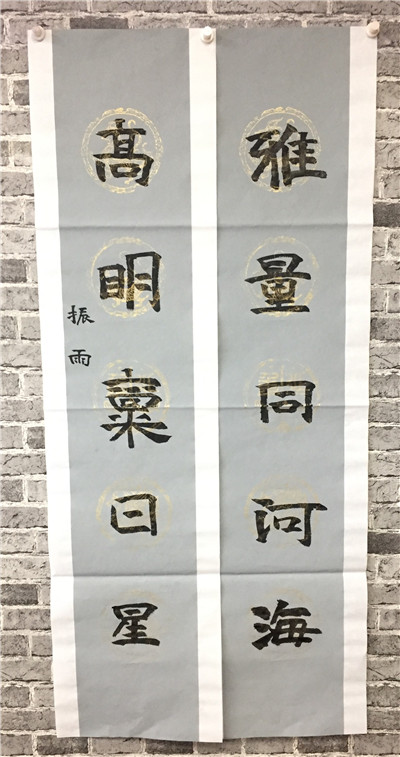 雅量同河海
高明稟日星
振雨